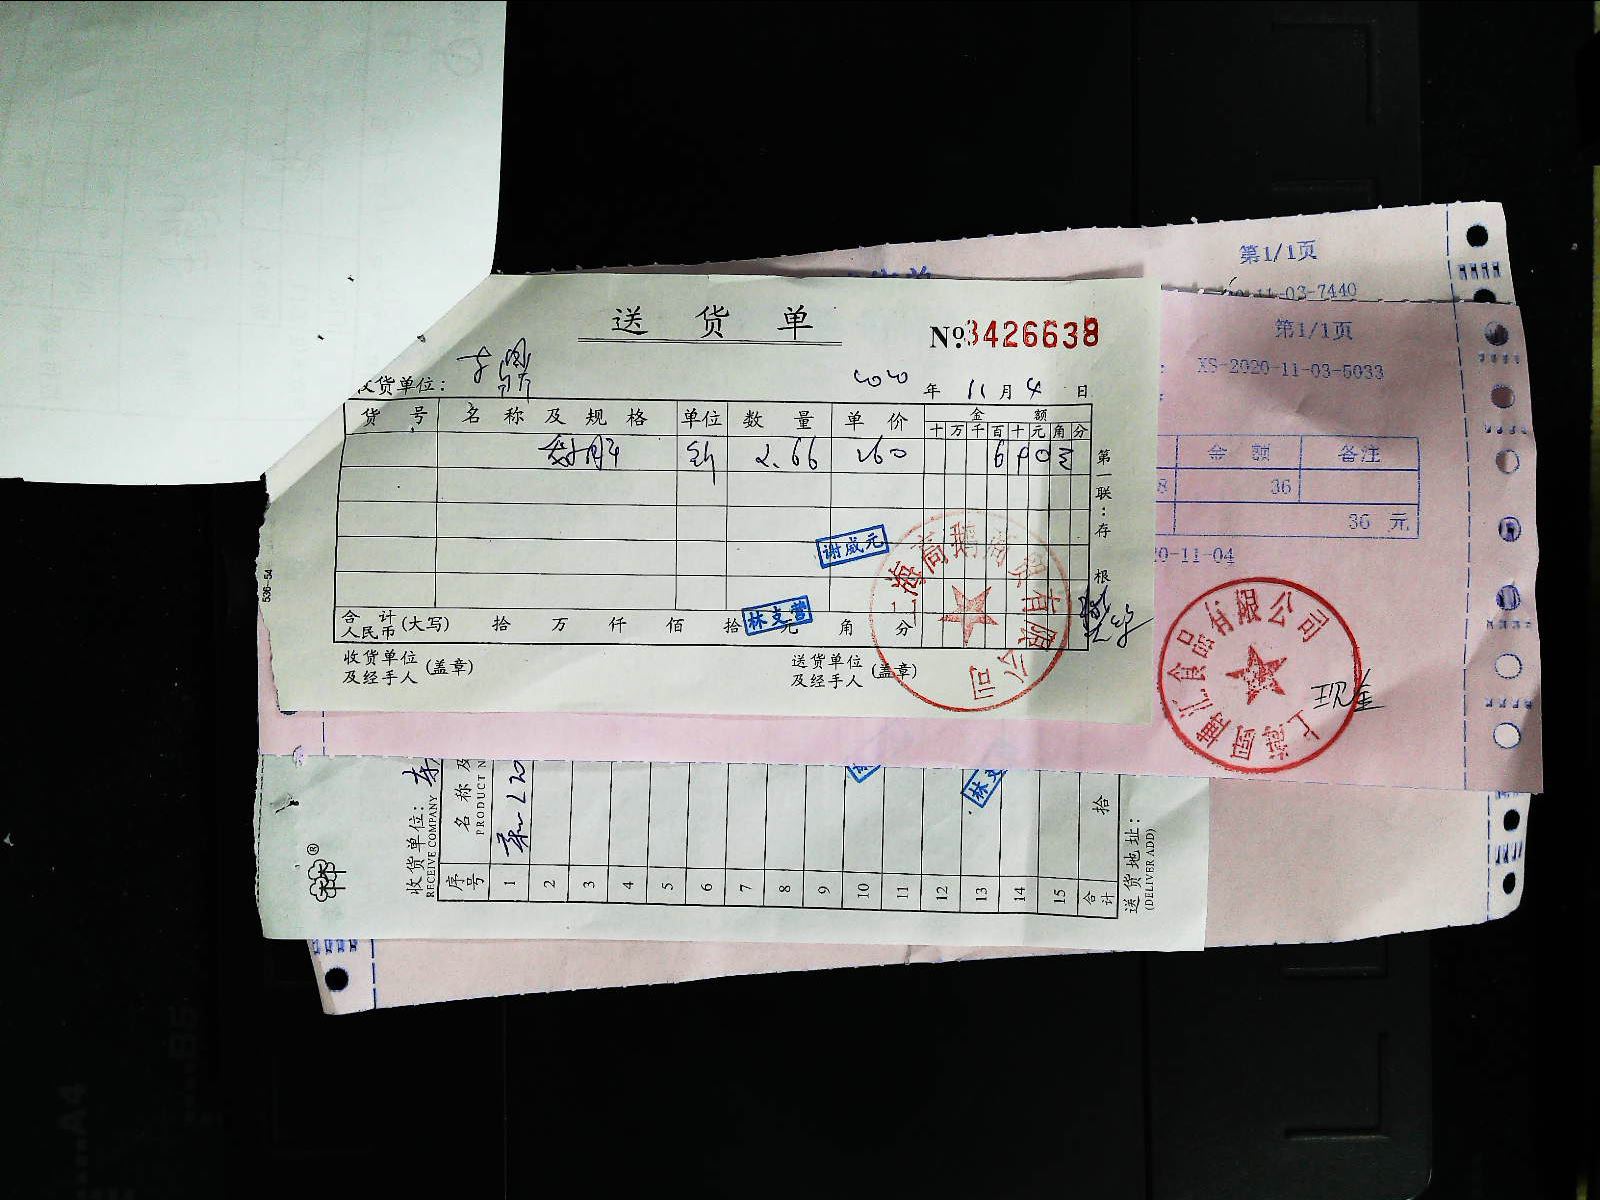 第1/1页
11-03-7440
第1/1页
XS-2020-11-03-5033
送货单
№3426638
收货单位：
2020年11月4日
货号 名称及规格 单位 数量 单价 金额
十万千百十元角分
2.66 260
第一联：存根
合计人民币(大写) 拾 万 仟 佰 拾 元 角 分
收货单位及经手人(盖章)
送货单位及经手人(盖章)
谢威元
林支营
上海高鹅商贸有限公司
536-54
金额 备注
36
36 元
20-11-04
上海厨莆汇食品有限公司
现金
收货单位：
RECEIVE COMPANY
序号 名称及
PRODUCT N
1
2
3
4
5
6
7
8
9
10
11
12
13
14
15
合计 拾
送货地址：
(DELIVER ADD)
林支
A4
B5